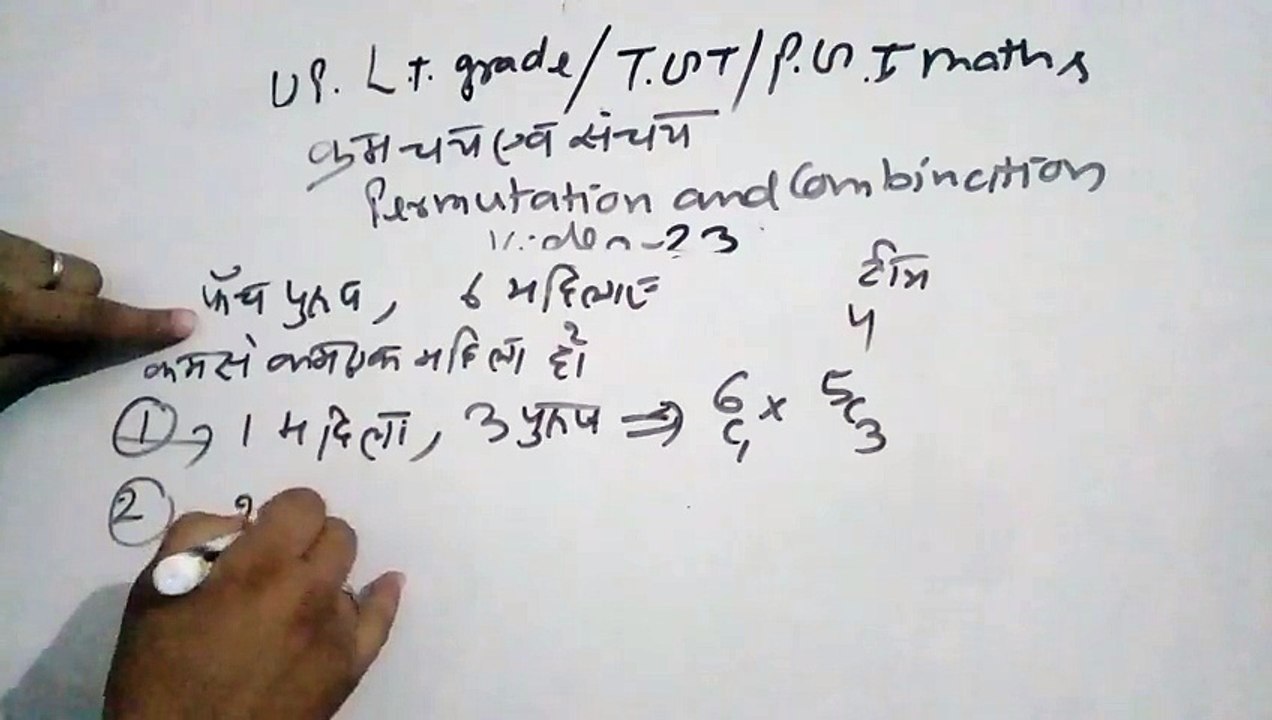 UP. L.T. grade/T.G.T/P.G.T maths
क्रमचय एवं संचय
Permutation and Combination
Video-23
पाँच पुरुष, 6 महिलाएँ
टीम
4
कमसे कमएक महिला हो
① → 1 महिला, 3 पुरुष ⇒ 6c1 × 5c3
② 2